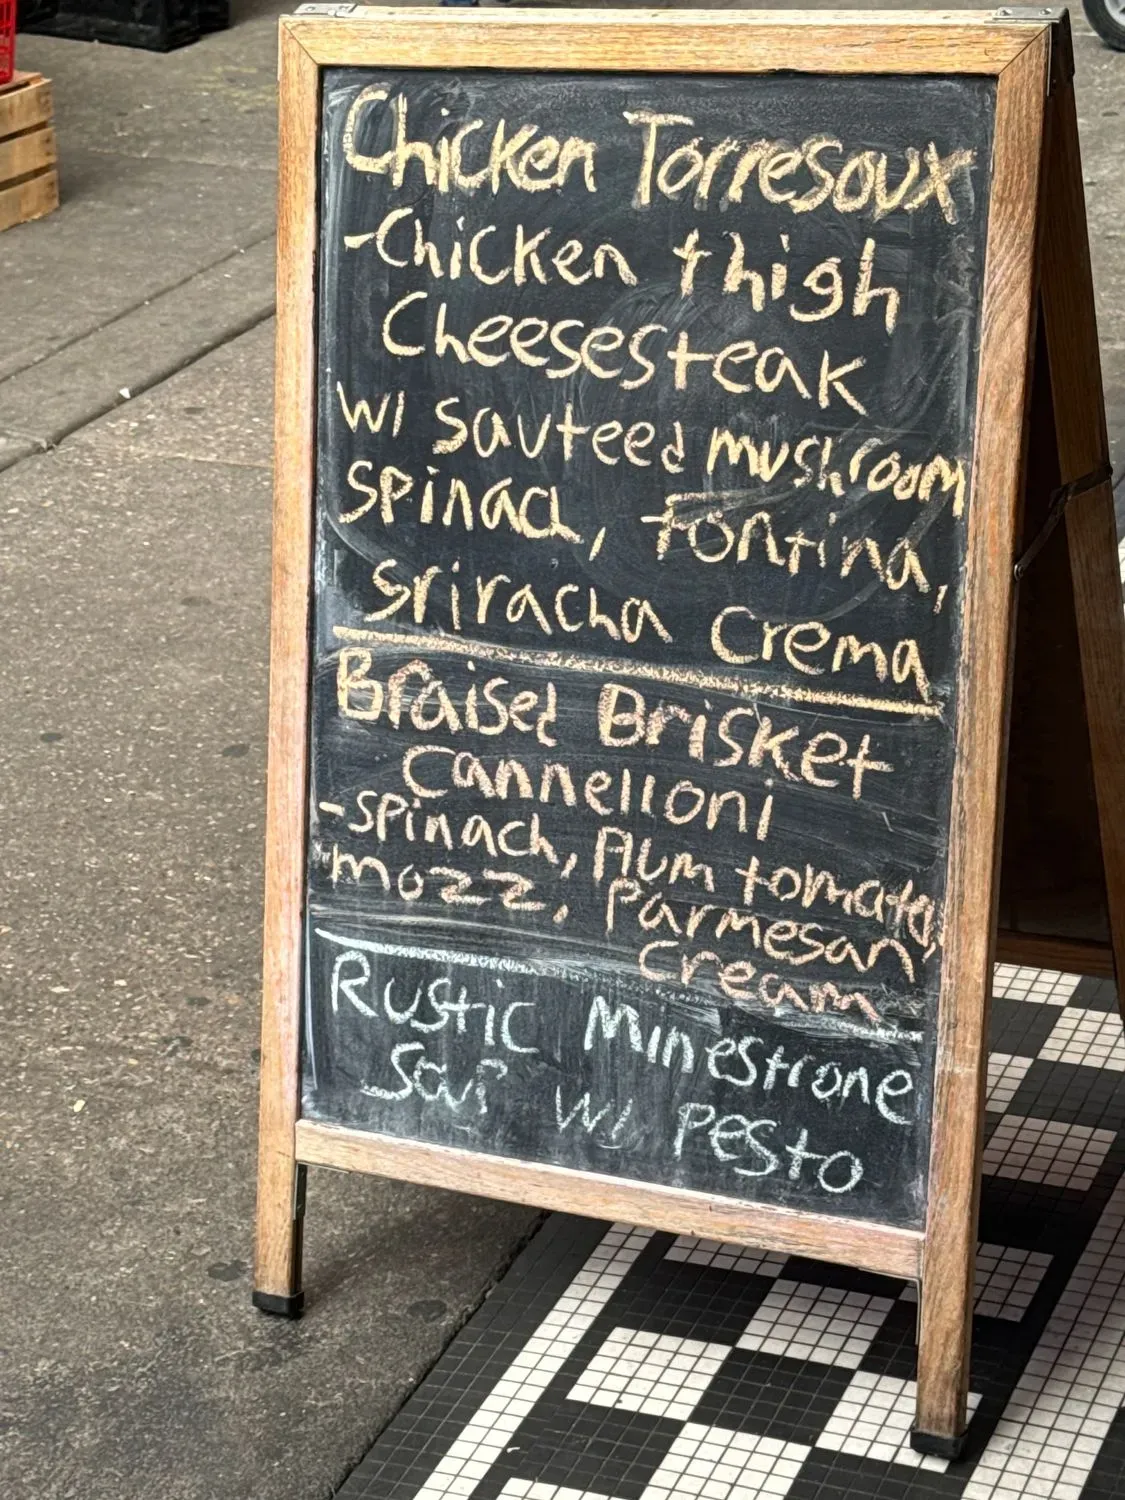 Chicken Torresoux
-Chicken thigh
Cheesesteak
w/ sauteed mushroom
spinach, Fontina,
sriracha Crema
Braised Brisket
Cannelloni
-spinach, Plum tomato,
mozz, Parmesan
Cream
Rustic Minestrone
Soup w/ Pesto